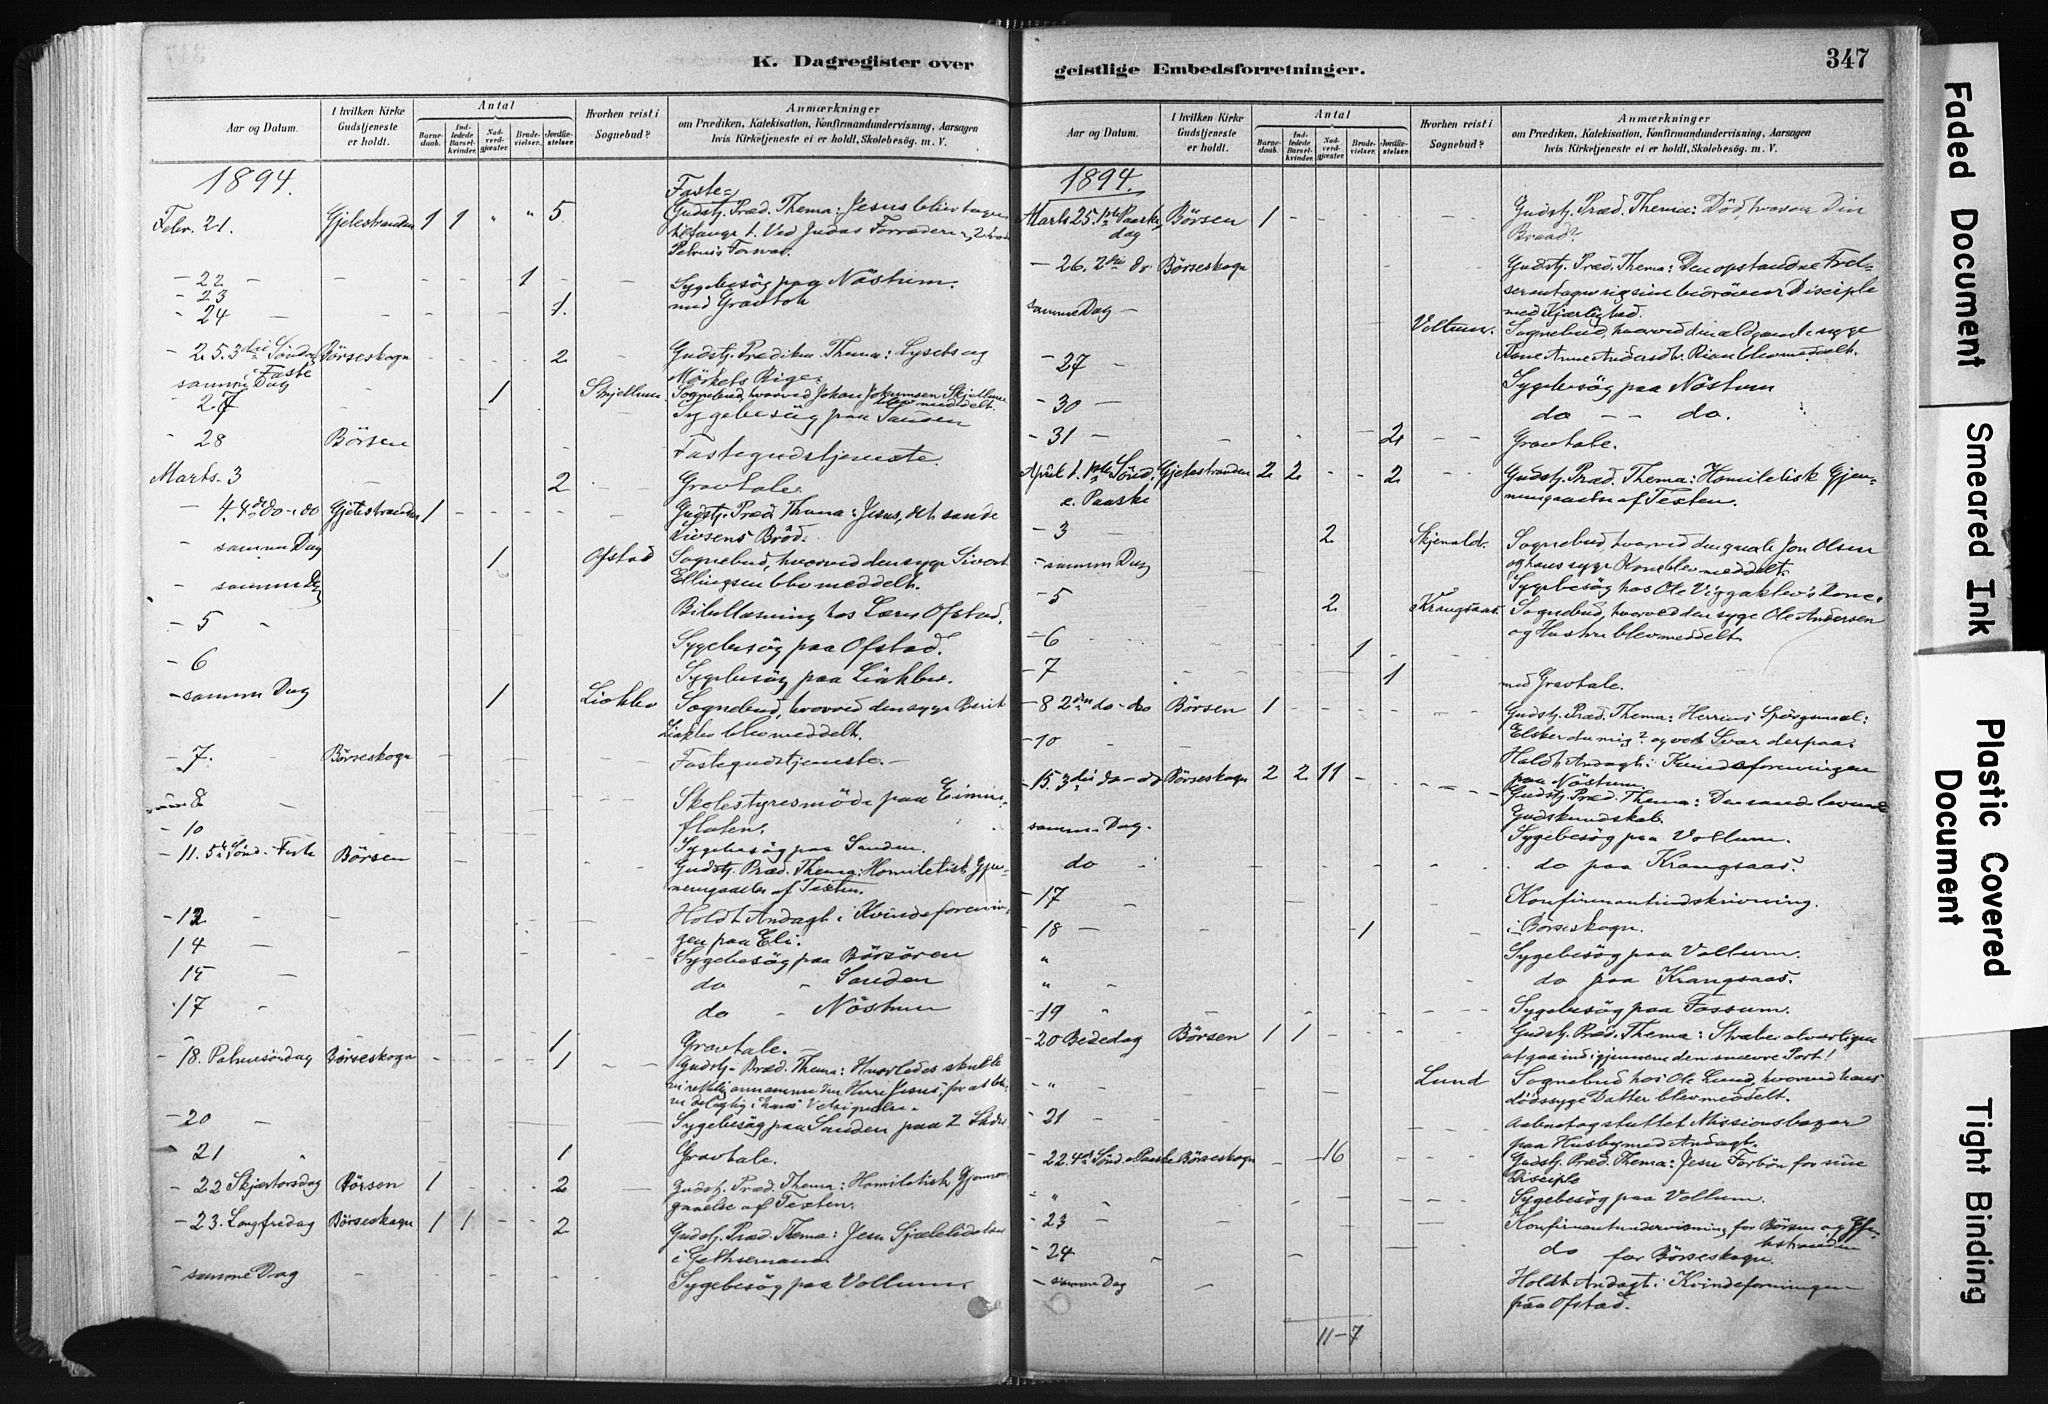 K. Dagregister over
Aar og Datum.
I hvilken Kirke Gudstjeneste er holdt.
Antal
Barnedaab.
Indledede Barselkvinder.
Nadverdgjæster.
Brudevielser.
Jordfæstelser.
Hvorhen reist i Sognebud?
Anmærkninger
om Prædiken, Katekisation, Konfirmandundervisning, Aarsagen
hvis Kirketjeneste ei er holdt, Skolebesög. m. V.
1894.
Faste=
Febr. 21. Gjetestranden 1 1 " " 5 Gudstj. Præd. Thema: Jesus blev tagen
til fange 1. Ved Judas Forræderi,
Petrus's
- 22 - 1 - Sygebesög paa Nöstum.
- 23
- 24 - 1. med Gravtale
- 25. 3die Söndag Börseskogn 2 Gudstj. Prædiken Thema: Lysets og
i Faste
Mörkets Rige.
samme Dag 1 Skjellum Sognebud, hvorved Johan Skjellum
blev meddelt.
- 27 Sygebesög paa
- 28 Börsen Fastegudstjeneste.
Marts 3 2 Gravtale.
- 4. do - do Gjetestranden 1 Gudstj. Præd. Thema: Jesus, det sande
Livsens Bröd.
- samme Dag 1 Ofstad Sognebud, hvorved den syge Sivert
Ellingsen blev meddelt.
- samme Dag Bibellæsning hos Lærer Ofstad.
- 5 Sygebesög paa Ofstad.
- 6 Sygebesög paa Liaklev.
- samme Dag 1 Liaklev Sognebud, hvorved den syge Berit
Liaklev blev meddelt.
- 7. Börseskogn Fastegudstjeneste.
8 Skolestyresmöde paa
flaten.
- 10 Sygebesög paa Sanden.
- 11. 5te Sönd. Faste Börsen Gudstj. Præd. Thema: Homiletisk Gjen-
nemgaaelse af Texten.
- 12 Holdt Andagt i Kvindeforenin-
gen paa Eli.
14 Sygebesög paa Börsören
15 do " Sanden
17 do - Nöstum
1 Gravtale.
- 18. Palmesöndag Börseskogn 1 Gudstj. Præd. Thema: Hvorledes skulle
vi rettelig annamme den Herre Jesus, for at bli-
ve delagtig i hans Velsignelse.
- 20 Sygebesög paa Sanden paa 2 Steder
- 21 1 Gravtale.
- 22 Skjærtorsdag Börsen 1 2 Gudstj. Præd. Thema: Homiletisk Gjennem-
gaaelse af Texten.
- 23. Langfredag Börseskogn 1 1 2 Gudstj. Præd. Thema: Jesu Sjælelidelser
i Gethsemane.
- samme Dag Sygebesög paa Vollum.
geistlige Embedsforretninger.
347
Aar og Datum.
I hvilken Kirke Gudstjeneste er holdt.
Antal
Barnedaab.
Indledede Barselkvinder.
Nadverdgjæster.
Brudevielser.
Jordfæstelser.
Hvorhen reist i Sognebud?
Anmærkninger
om Prædiken, Katekisation, Konfirmandundervisning, Aarsagen
hvis Kirketjeneste ei er holdt, Skolebesög. m. V.
1894.
Marts 25. 1ste Paaske- Börsen 1 Gudstj. Præd. Thema: Död, hvor er Din
dag Braad?
- 26. 2den do Börseskogn Gudstj. Præd. Thema: Den opstandne Frel-
ser antager sig sine bedrövede Disciple
med Kjærlighed.
samme Dag - Vollum. Sognebud, hvorved den ældgamle syge
Anne Andersdt. blev meddelt.
- 27 Sygebesög paa Nöstum
- 30 do - - do.
- 31 2 Gravtale.
April 1. 1ste Sönd. Gjetestranden 2 2 - - 2 Gudstj. Præd. Thema: Homiletisk Gjen-
e. Paaske nemgaaelse af Texten.
- 3 2 Skjenald. Sognebud, hvorved den gamle Jon Olsen
og hans syge Kone blev meddelt.
- samme Dag Sygebesög hos Ole Viggaklev's Kone.
- 5 2 Krangsaas. Sognebud, hvorved den syge Ole Andersen
og Hustru blev meddelt.
- 6 1
- 7 1 med Gravtale.
- 8 2den do - do Börsen 1 Gudstj. Præd. Thema: Herrens Spörgsmaal:
Elsker du mig? og vort Svar derpaa.
- 10 Holdt Andagt i Kvindeforeningen
paa Nöstum.
- 15. 3die do - do Börseskogn 2 2 11 Gudstj. Præd. Thema: Den sande levende
Gudskundskab.
samme Dag. Sygebesög paa Vollum.
do do paa Krangsaas.
- 17 Konfirmantindskrivning.
- 18 1 i Börseskogn.
" Sygebesög paa Vollum.
" do paa Krangsaas.
- 19 Sygebesög paa Fossum.
- 20 Bededag Börsen 1 1 Gudstj. Præd. Thema: Stræber alvorligen
at gaa ind igjennem den snævre Port!
- " - Lund Sognebud hos Ole Lund, hvorved hans
dödssyge Datter blev meddelt.
- 21 Aabnet og sluttet Missionsbazar
paa Husby med Andagt.
- 22. 4de Sönd. e. Paaske Börseskogn - -16 Gudstj. Præd. Thema: Jesu Forbön for sine
Disciple
" Sygebesög paa Vollum.
- 23 Konfirmantundervisning for Börsen og Gje-
testranden
- 24 do for Börseskogn
- samme Dag Holdt Andagt i Kvindeforeningen
paa Ofstad.
11-7
Faded Document
Smeared Ink
Plastic Covered
Document
Tight Binding